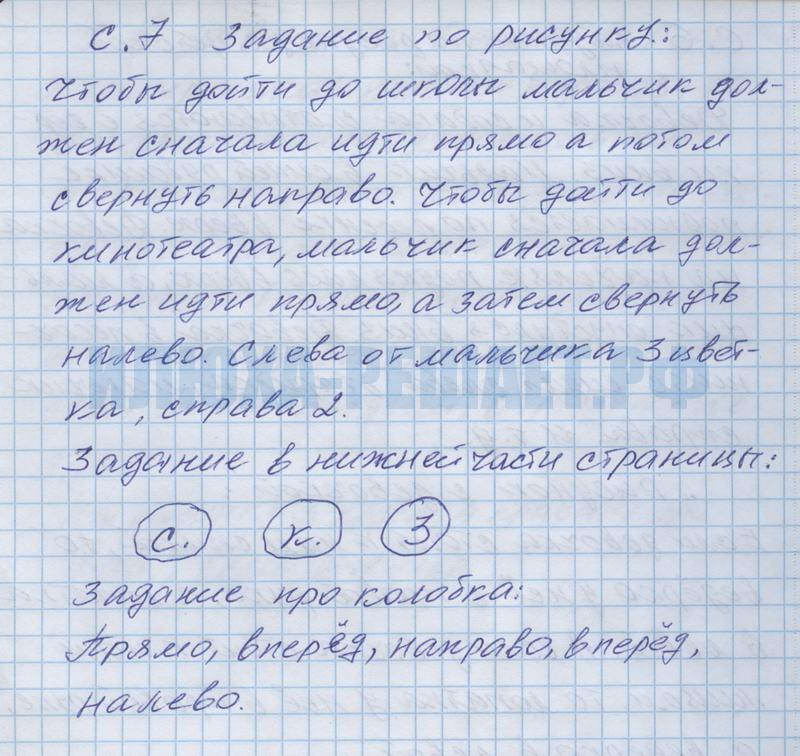 с. 7 Задание по рисунку:
Чтобы дойти до школы мальчик дол-
жен сначала идти прямо а потом
свернуть направо. Чтобы дойти до
кинотеатра, мальчик сначала дол-
жен идти прямо, а затем свернуть
налево. Слева от мальчика 3 цвет-
ка, справа 2.
Задание в нижней части страницы:
с. к. 3
Задание про колобка:
Прямо, вперёд, направо, вперёд,
налево.